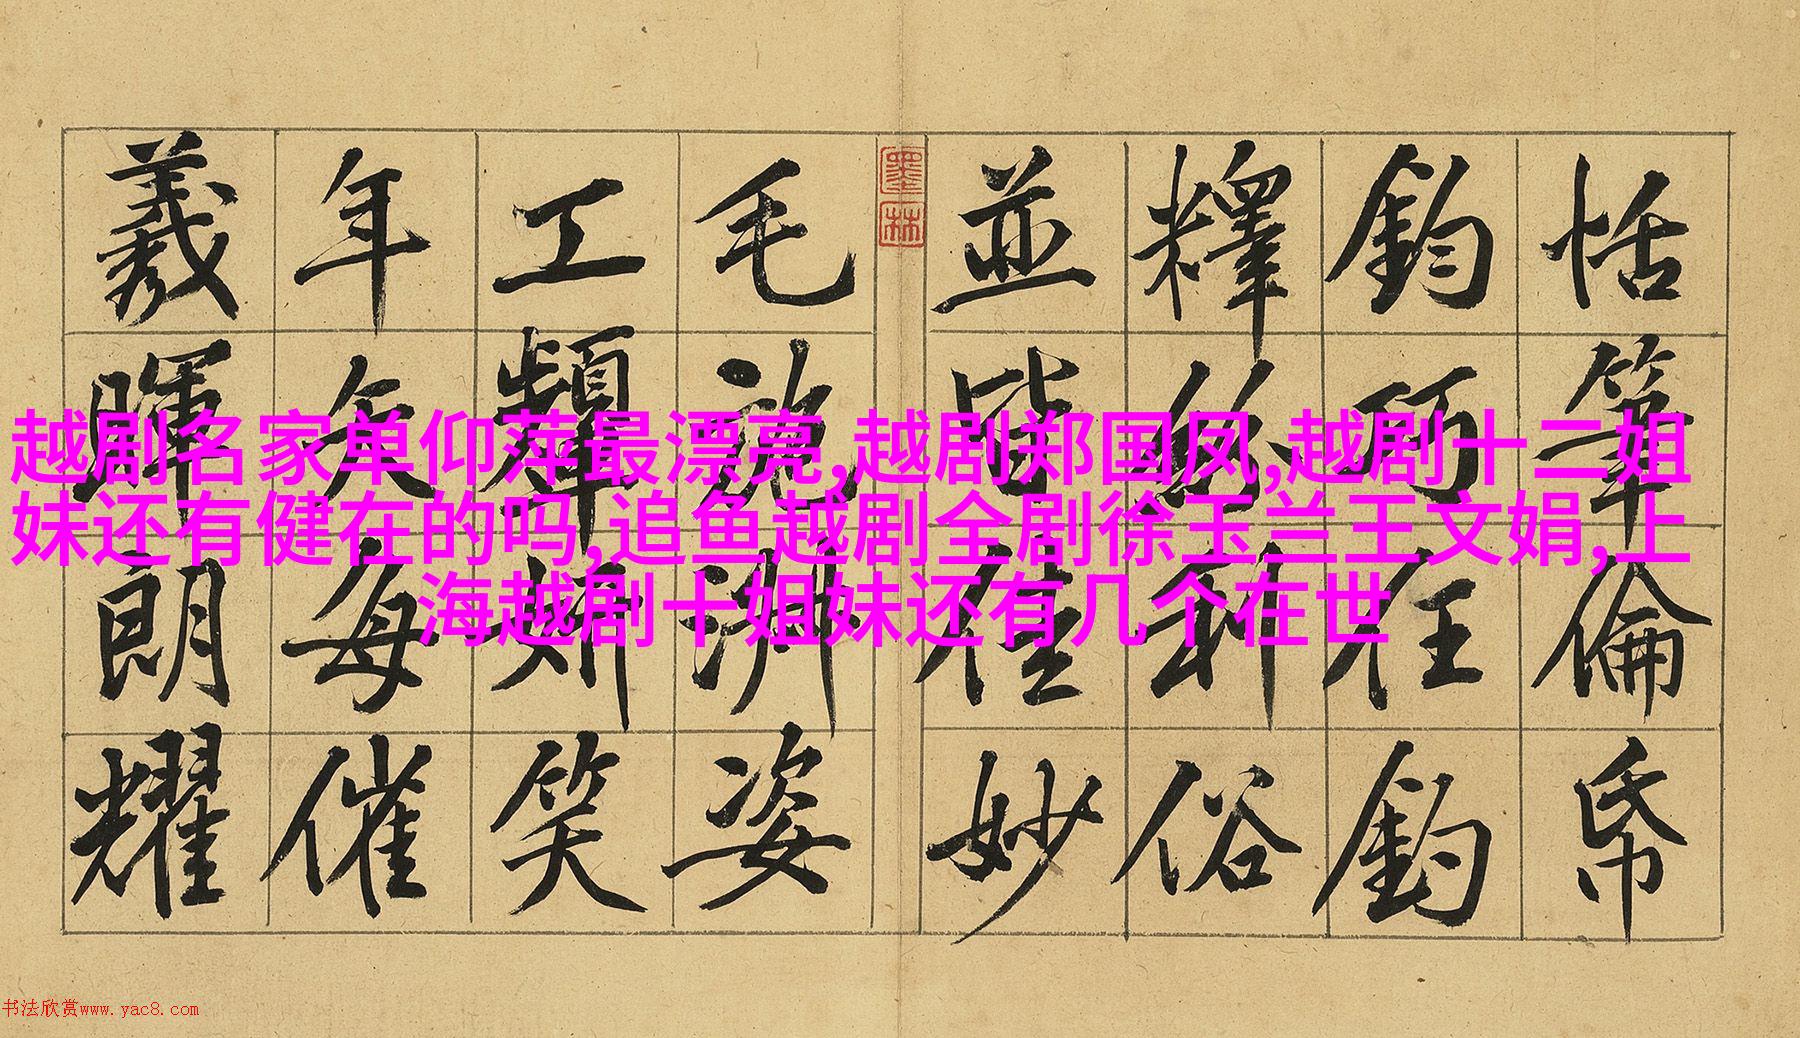 恬筆倫帋
鈞巧任釣
釋紛利俗
並皆佳妙
墨林
毛施淑姿
工顰妍笑
年矢每催
羲暉朗耀
越剧名家单仰萍最漂亮,越剧郑国凤,越剧十二姐
妹还有健在的吗,追鱼越剧全剧徐玉兰王文娟,上
海越剧十姐妹还有几个在世
书法欣赏www.yac8.com